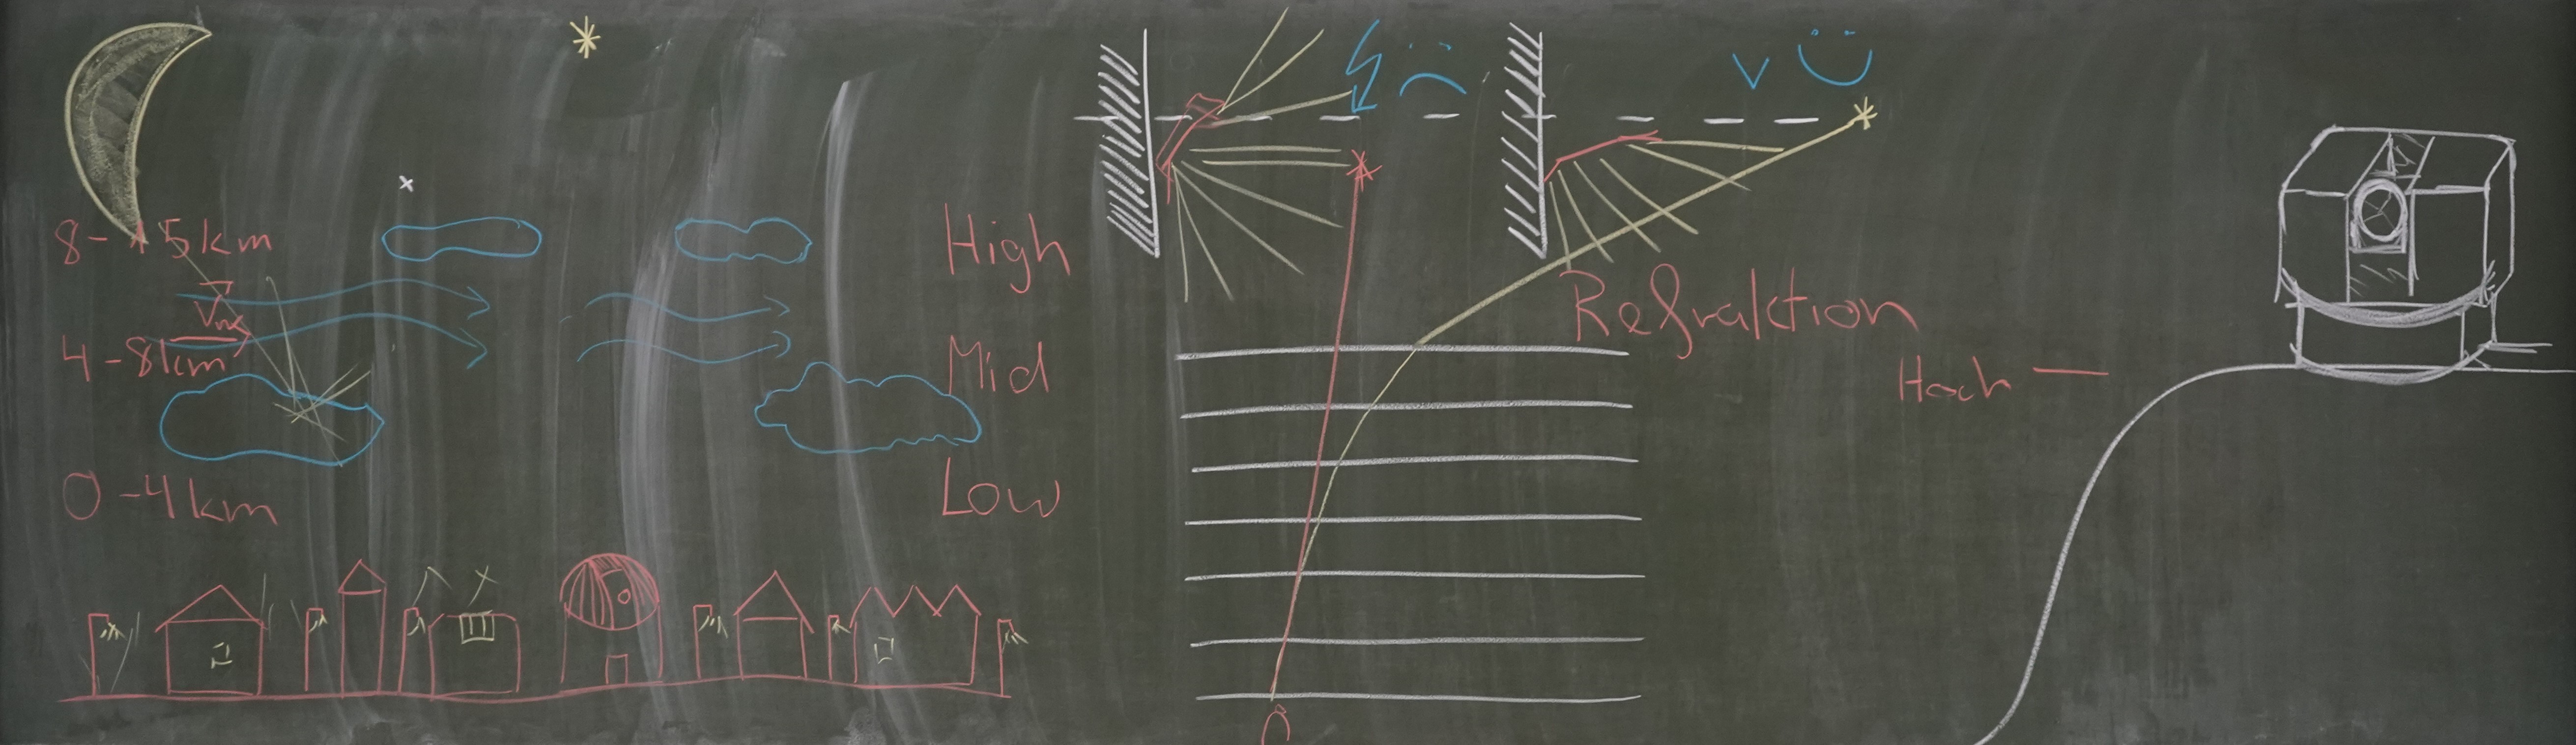 8-15km
High
4-8km
Mid
0-4km
Low
Refraktion
Hoch